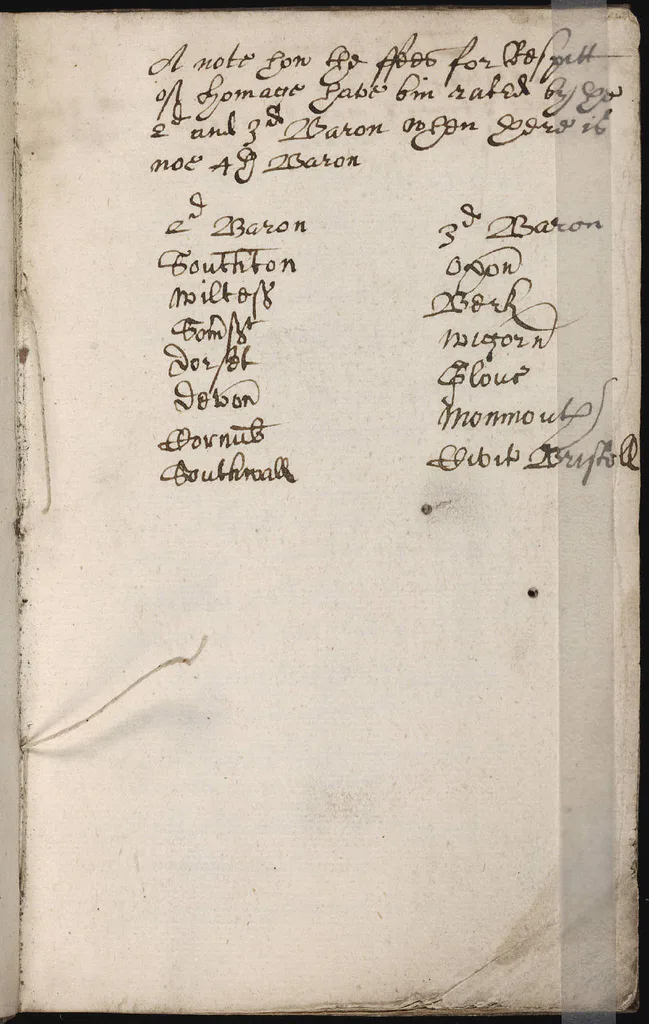 A note how the ffees for Respitt
of homage have bin rated by ye
2d and 3d Baron when yere is
noe 4th Baron
2d Baron
Southton
Wiltess
Somsst
Dorset
Devon
Cornub
Southwall
3d Baron
Oxon
Berk
Wigorn
Glouc
Monmouth
Civit Bristoll